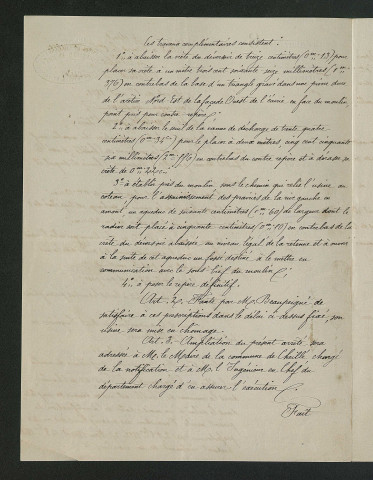 Ces travaux complémentaires consistent :
1° à abaisser la crête du déversoir de treize centimètres (0m.13) pour
placer sa crête à un mètre trois cent soixante seize millimètres (1m.
376) en contrebas de la base d'un triangle gravé dans une pierre dure
de l'arête Nord Est de la façade Ouest de l'usine en face du moulin,
point pris pour contre repère ;
2° à abaisser le seuil de la vanne de décharge de trente quatre
centimètres (0m 34) pour le placer à deux mètres cinq cent cinquante
six millimètres en contrebas du contre repère et à araser sa
crête de 0m 22 ;
3° à établir près du moulin sous le chemin qui relie l'usine au
coteau, pour l'assainissement des prairies de la rive gauche en
amont, un aqueduc de soixante centimètres (0m 60) de largeur dont le
radier sera placé à cinquante centimètres (0m 50) en contrebas de la
crête du déversoir abaissée au niveau légal de la retenue et à ouvrir
à la suite de cet aqueduc un fossé destiné à le mettre en
communication avec le sous bief du moulin ;
4° à poser le repère définitif.
Art. 2. Faute par M. Beaupsigné de
satisfaire à ces prescriptions dans le délai ci-dessus fixé, son
usine sera mise en chômage.
Art. 3. Ampliation du présent arrêté sera
adressée à M. le Maire de la commune de chargé
de la notification et à M. l'Ingénieur en Chef du
département chargé d'en assurer l'exécution
Fait